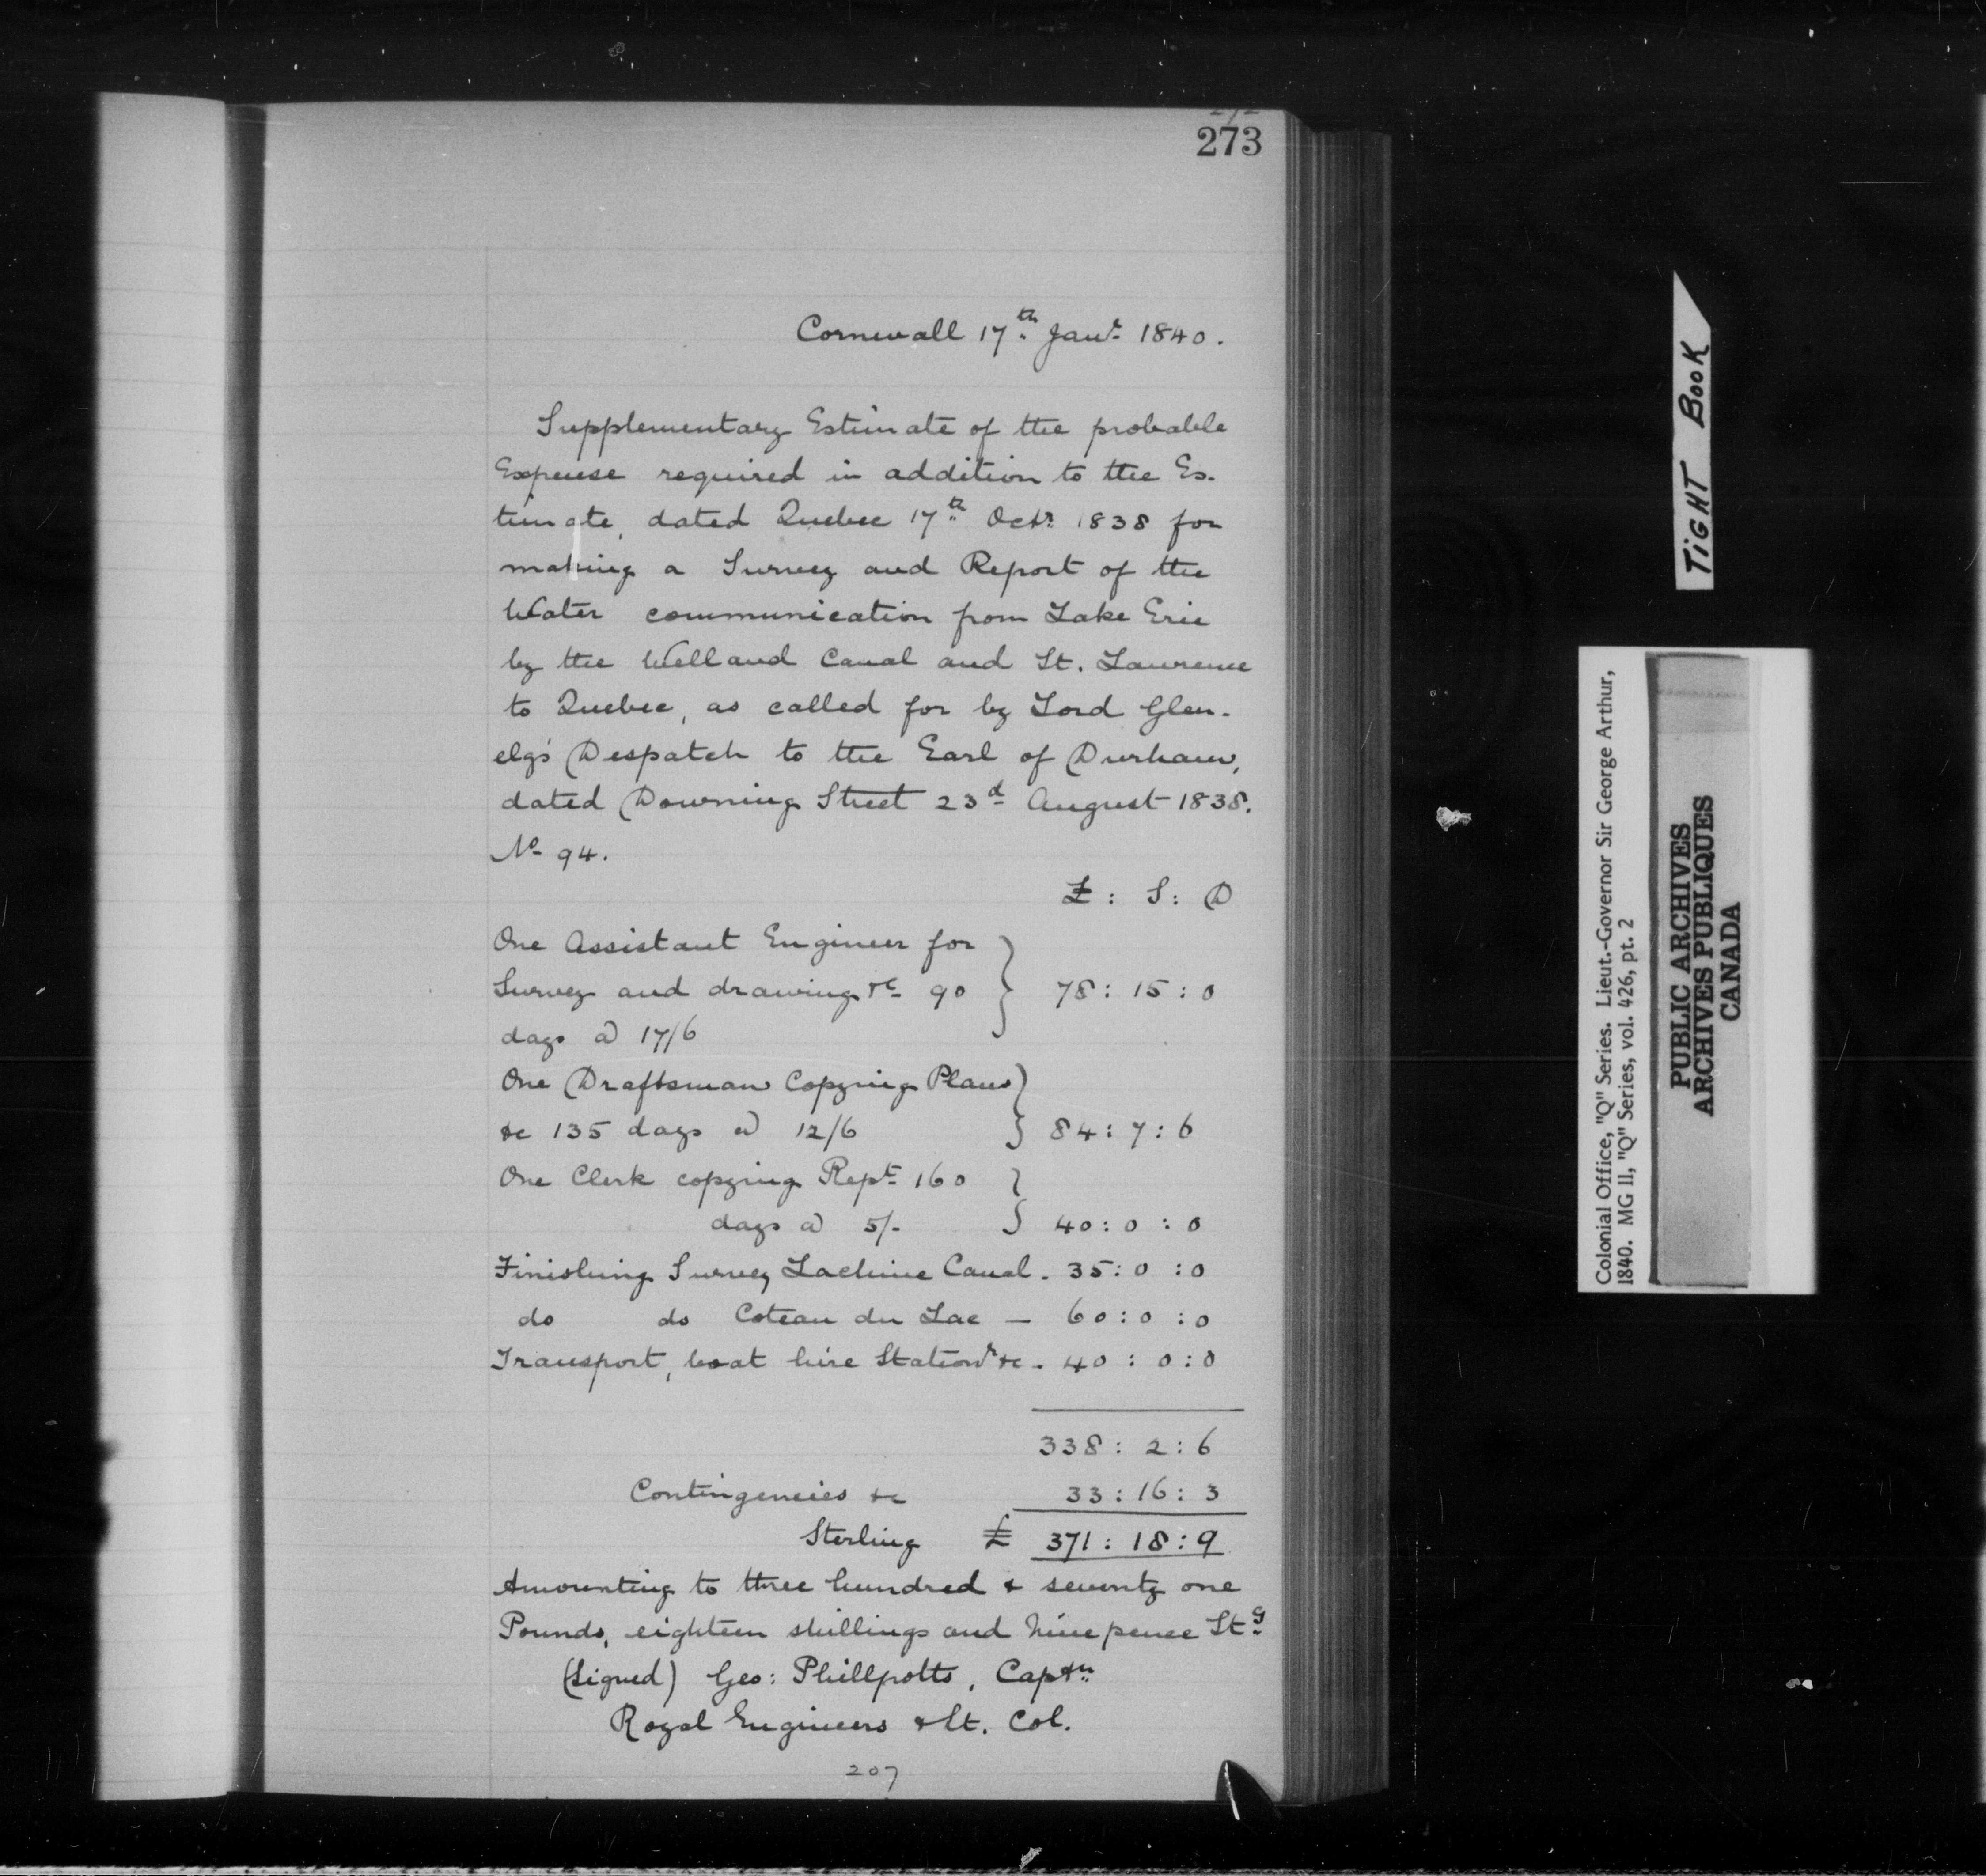 273
Cornwall 17th Janr 1840.
Supplementary Estimate of the probable
Expense required in addition to the Es-
timate, dated Quebec 17th Octr 1838 for
making a Survey and Report of the
Water communication from Lake Erie
by the Welland Canal and St. Lawrence
to Quebec, as called for by Lord Glen-
elg's Despatch to the Earl of Durham,
dated Downing Street 23d August 1838.
No 94.
£ : S : D
One Assistant Engineer for
Survey and drawing &c 90 } 78 : 15 : 0
days @ 17/6
One Draftsman Copying Plans }
&c 135 days @ 12/6 } 84 : 7 : 6
One Clerk copying Rept 160 }
days @ 5/- } 40 : 0 : 0
Finishing Survey Lachine Canal - 35 : 0 : 0
do do Coteau du Lac — 60 : 0 : 0
Transport, boat hire Stationy &c - 40 : 0 : 0
338 : 2 : 6
Contingencies &c 33 : 16 : 3
Sterling £ 371 : 18 : 9
Amounting to three hundred & seventy one
Pounds, eighteen shillings and Nine pence Stg
(Signed) Geo: Phillpotts, Captn
Royal Engineers & Lt. Col.
207
TIGHT BOOK
Colonial Office, "Q" Series. Lieut.-Governor Sir George Arthur,
1840. MG II, "Q" Series, vol. 426, pt. 2
PUBLIC ARCHIVES
ARCHIVES PUBLIQUES
CANADA